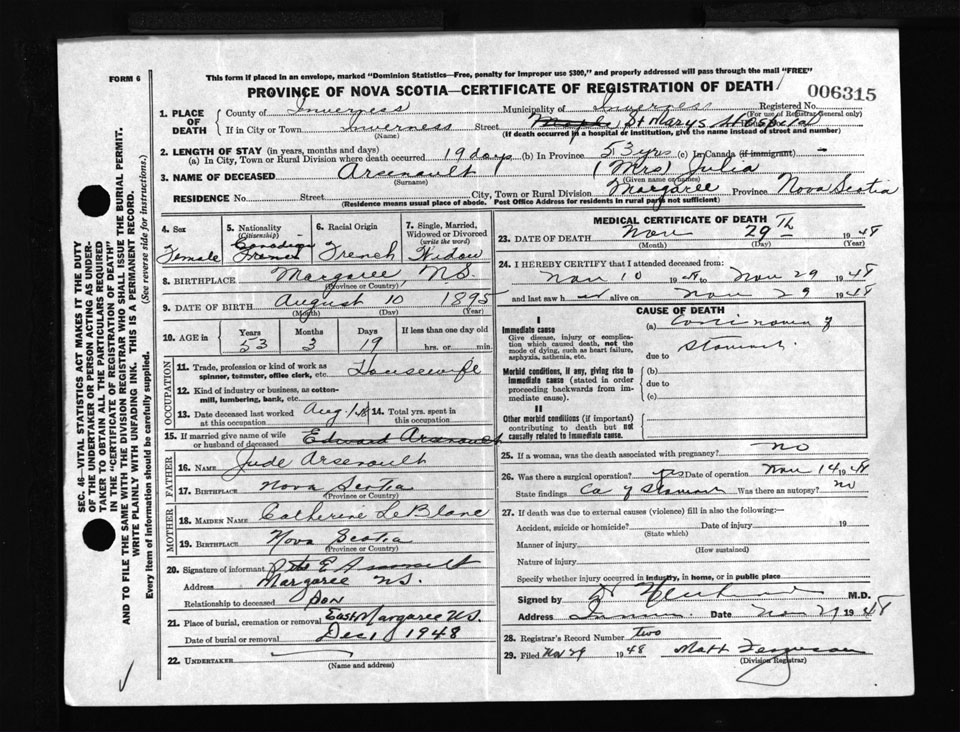 This form if placed in an envelope, marked "Dominion Statistics—Free, penalty for improper use $300," and properly addressed will pass through the mail "FREE"
FORM 6
PROVINCE OF NOVA SCOTIA—CERTIFICATE OF REGISTRATION OF DEATH
006315
1. PLACE OF DEATH
County of Inverness Municipality of Inverness Registered No.
(For use of Registrar General only)
If in City or Town Inverness Street Maple St Marys Hospital
(Name) (If death occurred in a hospital or institution, give the name instead of street and number)
2. LENGTH OF STAY (in years, months and days)
(a) In City, Town or Rural Division where death occurred 19 days (b) In Province 53 yrs (c) In Canada (if immigrant) -
3. NAME OF DECEASED Arsenault (Mrs) Julia
(Surname) (Given name or names)
RESIDENCE No. Street City, Town or Rural Division Margaree Province Nova Scotia
(Residence means usual place of abode. Post Office Address for residents in rural parts not sufficient)
4. Sex Female
5. Nationality (Citizenship) Canadian
6. Racial Origin French
7. Single, Married, Widowed or Divorced (write the word) Widow
8. BIRTHPLACE Margaree N.S.
(Province or Country)
9. DATE OF BIRTH August 10 1895
(Month) (Day) (Year)
10. AGE in Years Months Days If less than one day old
53 3 19 hrs. or min.
OCCUPATION
11. Trade, profession or kind of work as spinner, teamster, office clerk, etc. Housewife
12. Kind of industry or business, as cotton-mill, lumbering, bank, etc.
13. Date deceased last worked at this occupation Aug 1/48 14. Total yrs. spent in this occupation
15. If married give name of wife or husband of deceased Edward Arsenault
FATHER
16. NAME Jude Arsenault
17. BIRTHPLACE Nova Scotia
(Province or Country)
MOTHER
18. MAIDEN NAME Catherine LeBlanc
19. BIRTHPLACE Nova Scotia
(Province or Country)
20. Signature of informant
Address Margaree N.S.
Relationship to deceased Son
21. Place of burial, cremation or removal East Margaree N.S.
Date of burial or removal Dec 1 1948
22. UNDERTAKER
(Name and address)
MEDICAL CERTIFICATE OF DEATH
23. DATE OF DEATH Nov 29th 1948
(Month) (Day) (Year)
24. I HEREBY CERTIFY that I attended deceased from:
Nov 10 1948 to Nov 29 1948
and last saw her alive on Nov 29 1948
CAUSE OF DEATH
I
Immediate cause
Give disease, injury or complication which caused death, not the mode of dying, such as heart failure, asphyxia, asthenia, etc.
(a) Carcinoma of
Stomach
due to
Morbid conditions, if any, giving rise to immediate cause (stated in order proceeding backwards from immediate cause).
(b)
due to
(c)
II
Other morbid conditions (if important) contributing to death but not causally related to immediate cause.
25. If a woman, was the death associated with pregnancy? no
26. Was there a surgical operation? yes Date of operation Nov 14 1948
State findings Ca of Stomach Was there an autopsy? no
27. If death was due to external causes (violence) fill in also the following:—
Accident, suicide or homicide? Date of injury 19
(State which)
Manner of injury
(How sustained)
Nature of injury
Specify whether injury occurred in industry, in home, or in public place
Signed by M.D.
Address Date Nov 29 1948
28. Registrar's Record Number two
29. Filed Nov 29 1948 Matt Ferguson
(Division Registrar)
SEC. 46—VITAL STATISTICS ACT MAKES IT THE DUTY
OF THE UNDERTAKER OR PERSON ACTING AS UNDER-
TAKER TO OBTAIN ALL THE PARTICULARS REQUIRED
IN THE "CERTIFICATE OF REGISTRATION OF DEATH"
AND TO FILE THE SAME WITH THE DIVISION REGISTRAR WHO SHALL ISSUE THE BURIAL PERMIT.
WRITE PLAINLY WITH UNFADING INK. THIS IS A PERMANENT RECORD.
Every item of information should be carefully supplied. (See reverse side for instructions.)